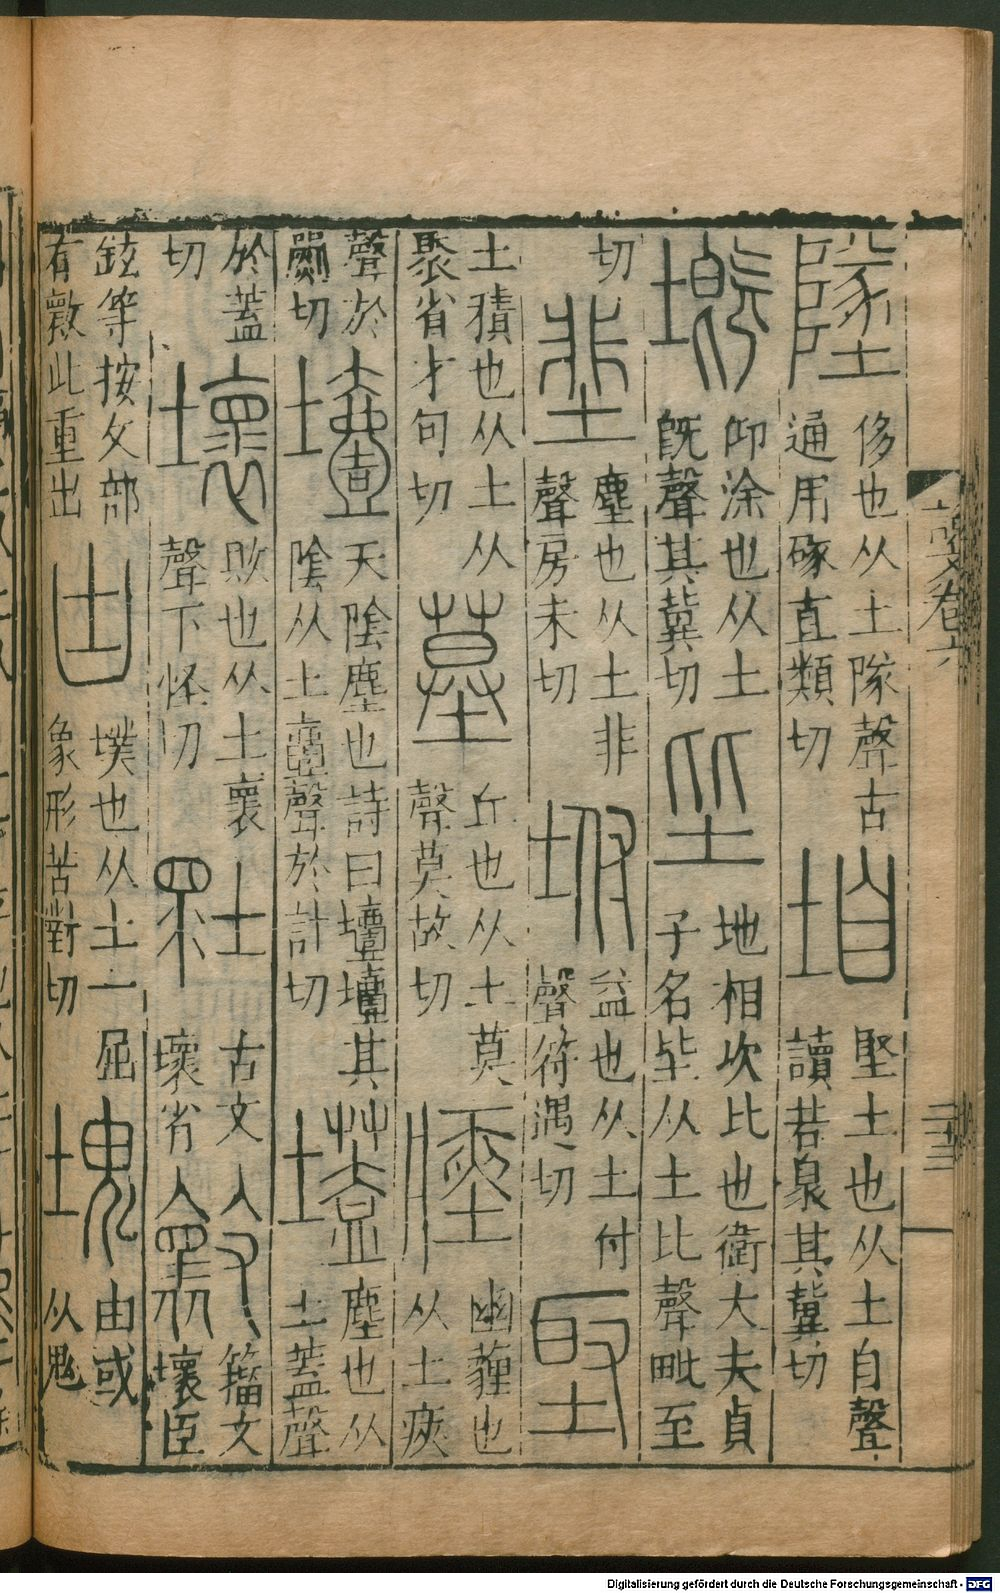 說文卷六
二十三
墜
侈也从土隊聲古
通用硺直類切
垍
堅土也从土自聲
讀若泉其冀切
塈
仰涂也从土
旣聲其冀切
坒
地相次比也衛大夫貞
子名坒从土比聲毗至
切
𡋯
塵也从土非
聲房未切
坿
益也从土付
聲符遇切
埾
土積也从土从
聚省才句切
墓
丘也从土莫
聲莫故切
瘞
幽薶也
从土㾜
聲於
罽切
㙪
天陰塵也詩曰㙪㙪其
陰从土壹聲於計切
壒
塵也从
土蓋聲
於蓋
切
壞
敗也从土褱
聲下怪切
古文
壞省
籀文
壞臣
鉉等按攵部
有此重出
凷
墣也从土一屈
象形苦對切
塊
由或
从鬼
Digitalisierung gefördert durch die Deutsche Forschungsgemeinschaft - DFG